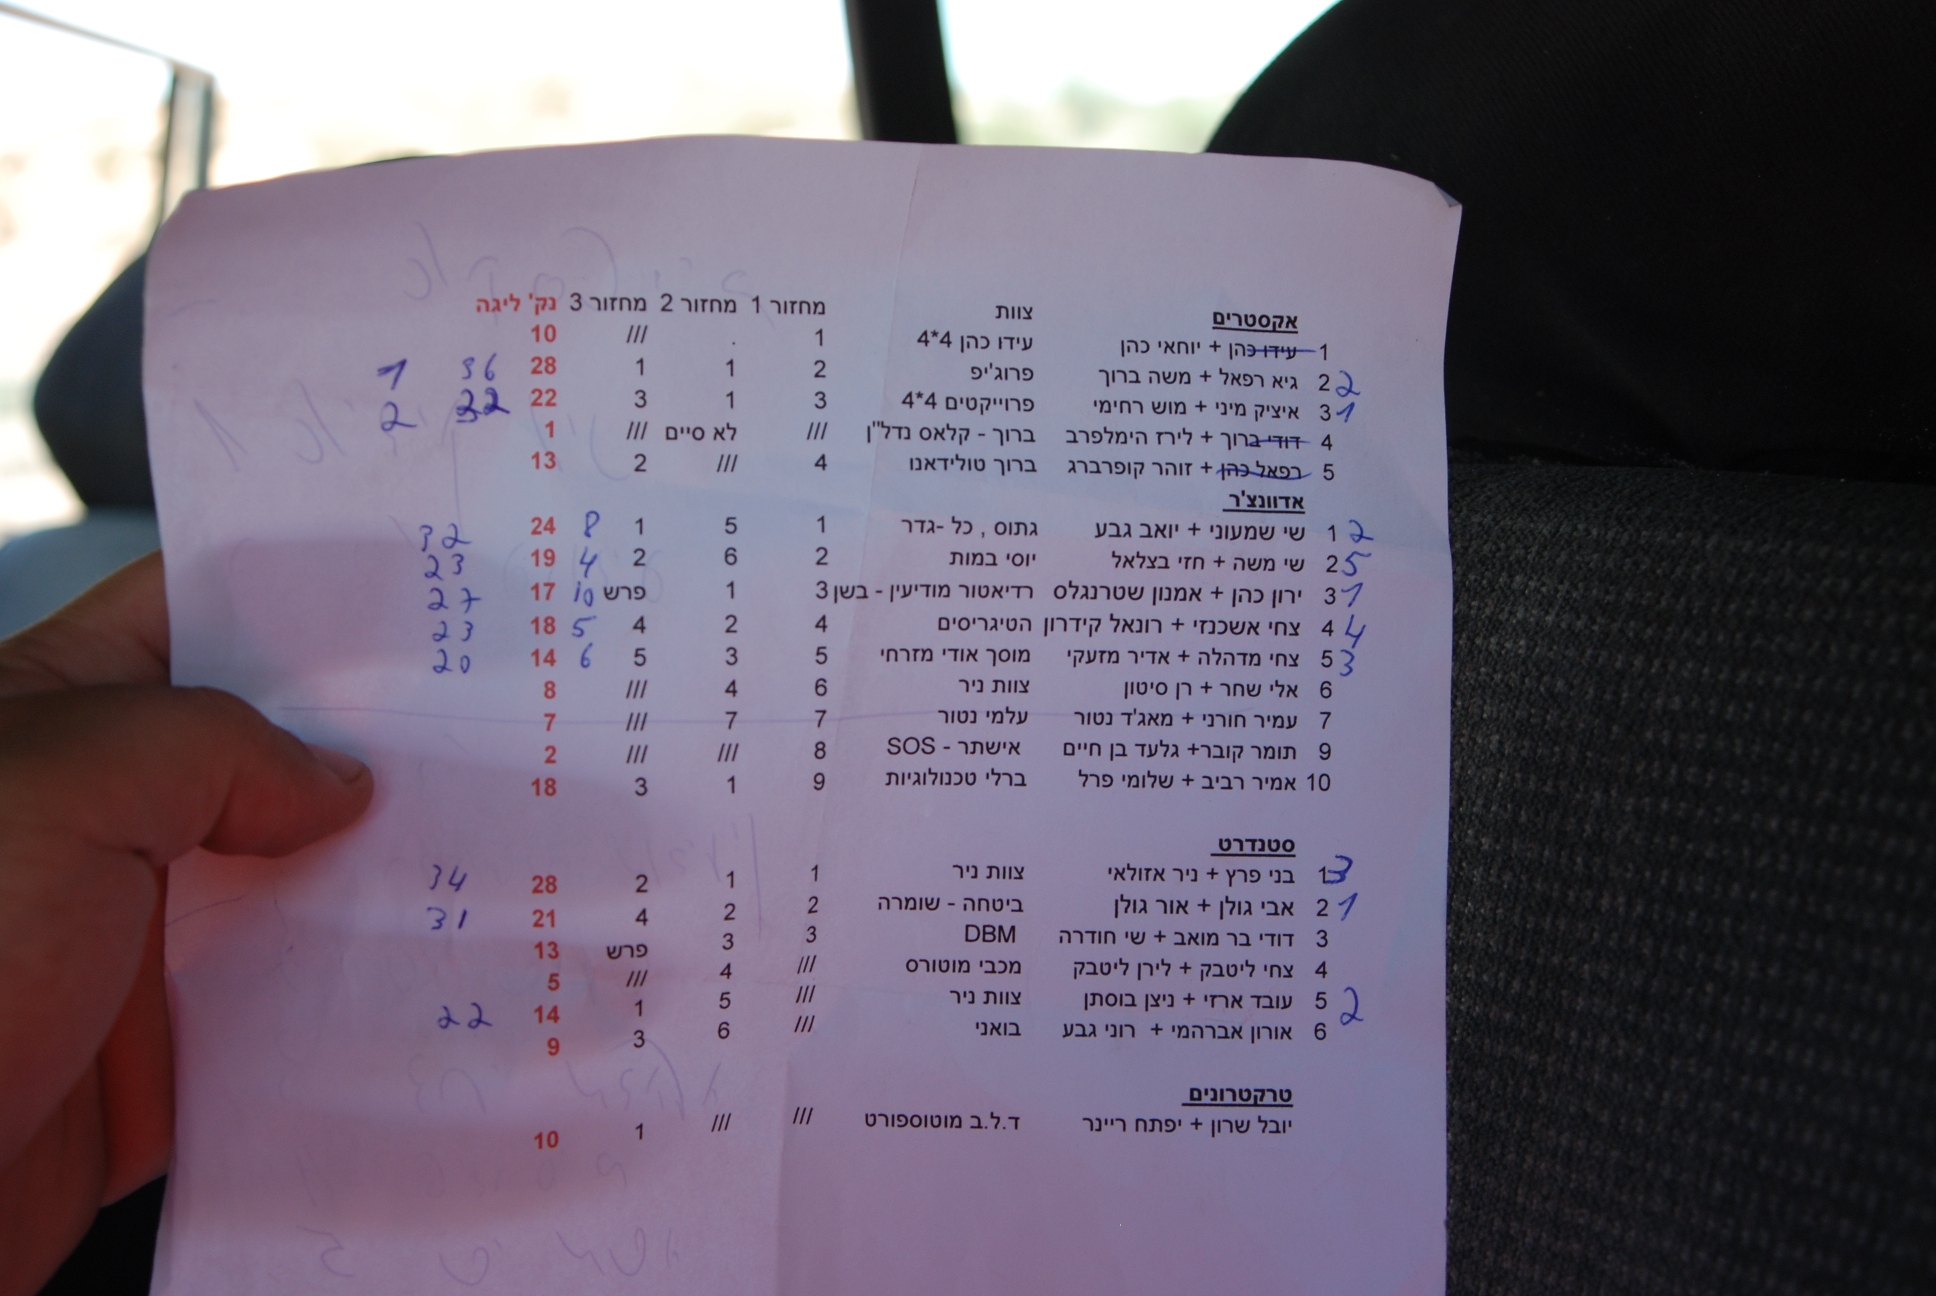 צוות מחזור 1 מחזור 2 מחזור 3 נק' ליגה
אקסטרים
1 עידו כהן + יוחאי כהן עידו כהן 4*4 1 . /// 10
2 2 גיא רפאל + משה ברוך פרוג'יפ 2 1 1 28 36 1
1 3 איציק מיני + מוש רחימי פרוייקטים 4*4 3 1 3 22 32 2
4 דודי ברוך + לירז הימלפרב ברוך - קלאס נדל"ן /// לא סיים /// 1
5 רפאל כהן + זוהר קופרברג ברוך טולידאנו 4 /// 2 13
אדוונצ'ר
2 1 שי שמעוני + יואב גבע גתוס , כל -גדר 1 5 1 8 24 32
5 2 שי משה + חזי בצלאל יוסי במות 2 6 2 4 19 23
1 3 ירון כהן + אמנון שטרנגלס רדיאטור מודיעין - בשן 3 1 פרש 10 17 27
4 4 צחי אשכנזי + רונאל קידרון הטיגריסים 4 2 4 5 18 23
3 5 צחי מדהלה + אדיר מזעקי מוסך אודי מזרחי 5 3 5 6 14 20
6 אלי שחר + רן סיטון צוות ניר 6 4 /// 8
7 עמיר חורני + מאג'ד נטור עלמי נטור 7 7 /// 7
9 תומר קובר+ גלעד בן חיים אישתר - SOS 8 /// /// 2
10 אמיר רביב + שלומי פרל ברלי טכנולוגיות 9 1 3 18
סטנדרט
3 1 בני פרץ + ניר אזולאי צוות ניר 1 1 2 28 34
1 2 אבי גולן + אור גולן ביטחה - שומרה 2 2 4 21 31
3 דודי בר מואב + שי חודרה DBM 3 3 פרש 13
4 צחי ליטבק + לירן ליטבק מכבי מוטורס /// 4 /// 5
2 5 עובד ארזי + ניצן בוסתן צוות ניר /// 5 1 14 22
6 אורון אברהמי + רוני גבע בואני /// 6 3 9
טרקטרונים
יובל שרון + יפתח ריינר ד.ל.ב מוטוספורט /// /// 1 10